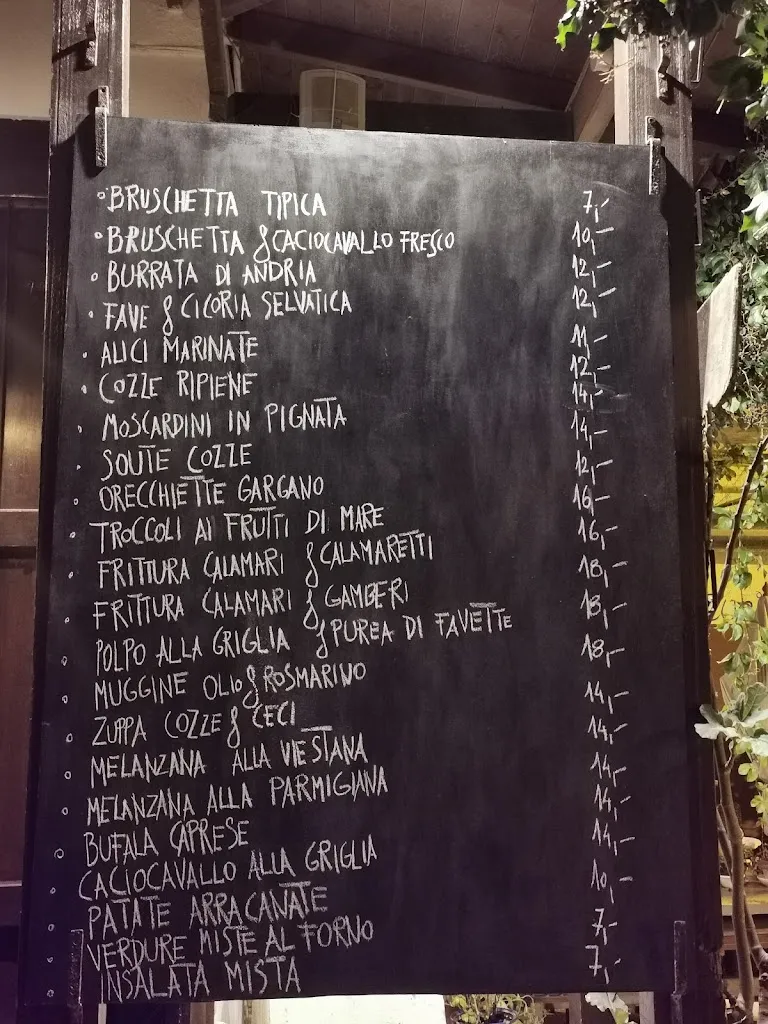 BRUSCHETTA TIPICA
BRUSCHETTA & CACIOCAVALLO FRESCO
BURRATA DI ANDRIA
FAVE & CICORIA SELVATICA
ALICI MARINATE
COZZE RIPIENE
MOSCARDINI IN PIGNATA
SOUTE COZZE
ORECCHIETTE GARGANO
TROCCOLI AI FRUTTI DI MARE
FRITTURA CALAMARI & CALAMARETTI
FRITTURA CALAMARI & GAMBERI
POLPO ALLA GRIGLIA & PUREA DI FAVETTE
MUGGINE OLIO & ROSMARINO
ZUPPA COZZE & CECI
MELANZANA ALLA VIESTANA
MELANZANA ALLA PARMIGIANA
BUFALA CAPRESE
CACIOCAVALLO ALLA GRIGLIA
PATATE ARRACANATE
VERDURE MISTE AL FORNO
INSALATA MISTA
7,-
10,-
12,-
12,-
11,-
12,-
14,-
14,-
12,-
16,-
16,-
18,-
18,-
18,-
14,-
14,-
14,-
14,-
14,-
10,-
7,-
7,-